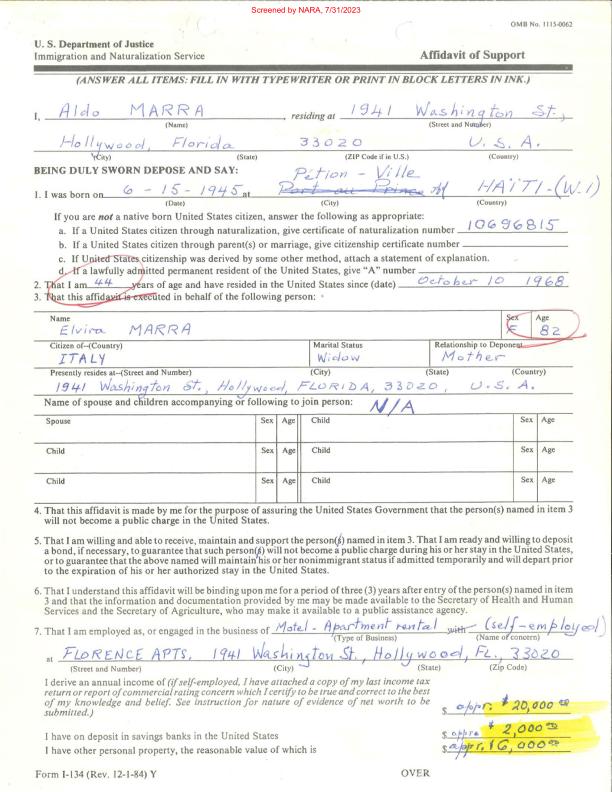 Screened by NARA, 7/31/2023
OMB No. 1115-0062
U. S. Department of Justice
Immigration and Naturalization Service
Affidavit of Support
(ANSWER ALL ITEMS: FILL IN WITH TYPEWRITER OR PRINT IN BLOCK LETTERS IN INK.)
I, Aldo MARRA residing at 1941 Washington St.,
(Name) (Street and Number)
Hollywood, Florida 33020 U. S. A.
(City) (State) (ZIP Code if in U.S.) (Country)
BEING DULY SWORN DEPOSE AND SAY:
Pétion - Ville
1. I was born on 6 - 15 - 1945 at Port au Prince HAÏTI-(W.I)
(Date) (City) (Country)
If you are not a native born United States citizen, answer the following as appropriate:
a. If a United States citizen through naturalization, give certificate of naturalization number 10696815
b. If a United States citizen through parent(s) or marriage, give citizenship certificate number
c. If United States citizenship was derived by some other method, attach a statement of explanation.
d. If a lawfully admitted permanent resident of the United States, give "A" number
2. That I am 44 years of age and have resided in the United States since (date) October 10 1968
3. That this affidavit is executed in behalf of the following person:
Name Sex Age
Elvira MARRA F 82
Citizen of--(Country) Marital Status Relationship to Deponent
ITALY Widow Mother
Presently resides at--(Street and Number) (City) (State) (Country)
1941 Washington St., Hollywood, FLORIDA, 33020, U. S. A.
Name of spouse and children accompanying or following to join person: N/A
Spouse Sex Age Child Sex Age
Child Sex Age Child Sex Age
Child Sex Age Child Sex Age
4. That this affidavit is made by me for the purpose of assuring the United States Government that the person(s) named in item 3
will not become a public charge in the United States.
5. That I am willing and able to receive, maintain and support the person(s) named in item 3. That I am ready and willing to deposit
a bond, if necessary, to guarantee that such person(s) will not become a public charge during his or her stay in the United States,
or to guarantee that the above named will maintain his or her nonimmigrant status if admitted temporarily and will depart prior
to the expiration of his or her authorized stay in the United States.
6. That I understand this affidavit will be binding upon me for a period of three (3) years after entry of the person(s) named in item
3 and that the information and documentation provided by me may be made available to the Secretary of Health and Human
Services and the Secretary of Agriculture, who may make it available to a public assistance agency.
7. That I am employed as, or engaged in the business of Motel - Apartment rental with (self-employed)
(Type of Business) (Name of concern)
at FLORENCE APTS. 1941 Washington St., Hollywood, FL., 33020
(Street and Number) (City) (State) (Zip Code)
I derive an annual income of (if self-employed, I have attached a copy of my last income tax
return or report of commercial rating concern which I certify to be true and correct to the best
of my knowledge and belief. See instruction for nature of evidence of net worth to be
submitted.) $ appr. $ 20,000 00
I have on deposit in savings banks in the United States $ appr. $ 2,000 00
I have other personal property, the reasonable value of which is $ appr. $ 6,000 00
Form I-134 (Rev. 12-1-84) Y OVER